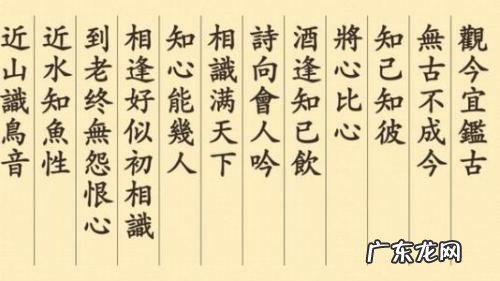 觀今宜鑑古
無古不成今
知己知彼
將心比心
酒逢知已飲
詩向會人吟
相識满天下
知心能幾人
相逢好似初相識
到老终無怨恨心
近水知魚性
近山識鳥音
广东龙网